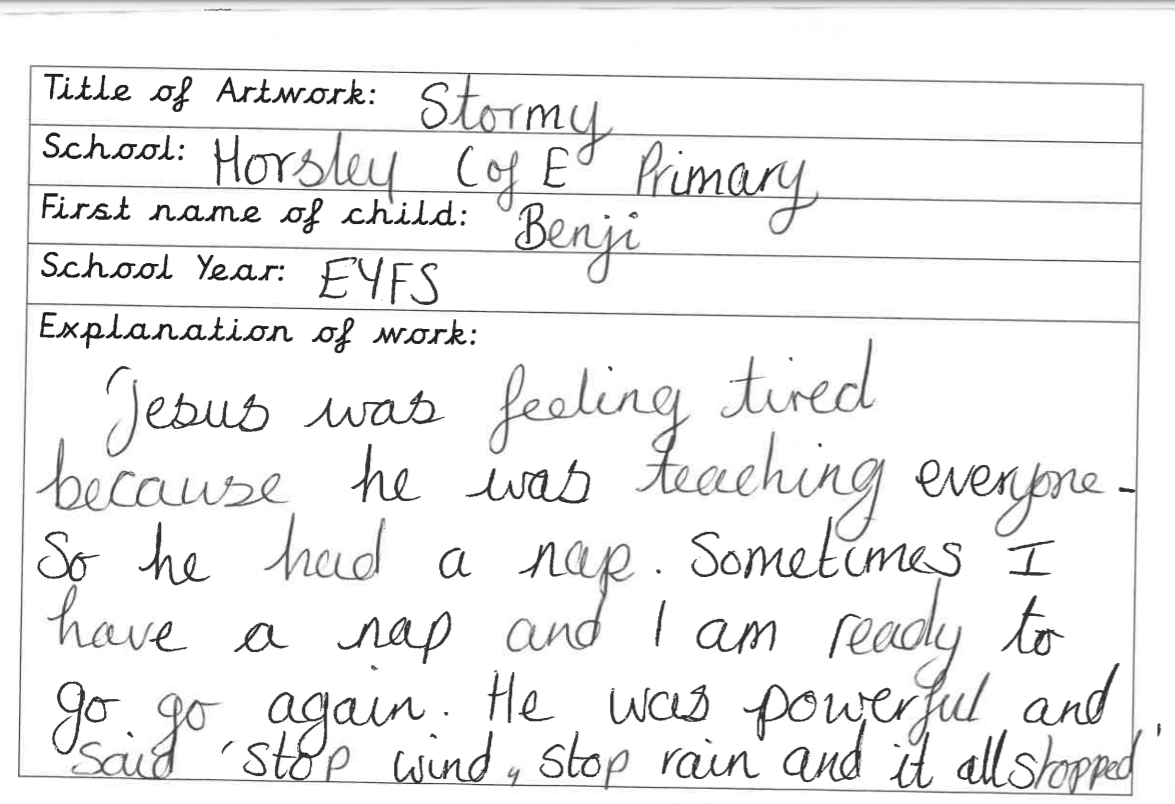 Title of Artwork: Stormy
School: Horsley C of E Primary
First name of child: Benji
School Year: EYFS
Explanation of work:
'Jesus was feeling tired
because he was teaching everyone -
So he had a nap. Sometimes I
have a nap and I am ready to
go go again. He was powerful and
said 'stop wind, stop rain and it all stopped'